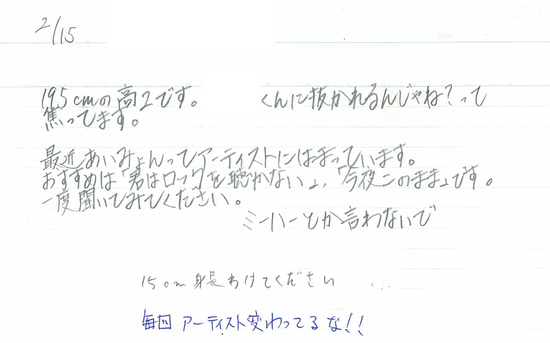 2/15
195cmの高2です。 くんに抜かれるんじゃね?って
焦ってます。
最近あいみょんってアーティストにはまっています。
おすすめは「君はロックを聴かない」、「今夜このまま」です。
一度聞いてみてください。
ミーハーとか言わないで
15cm身長わけてください ...
毎回 アーティスト変わってるな!!